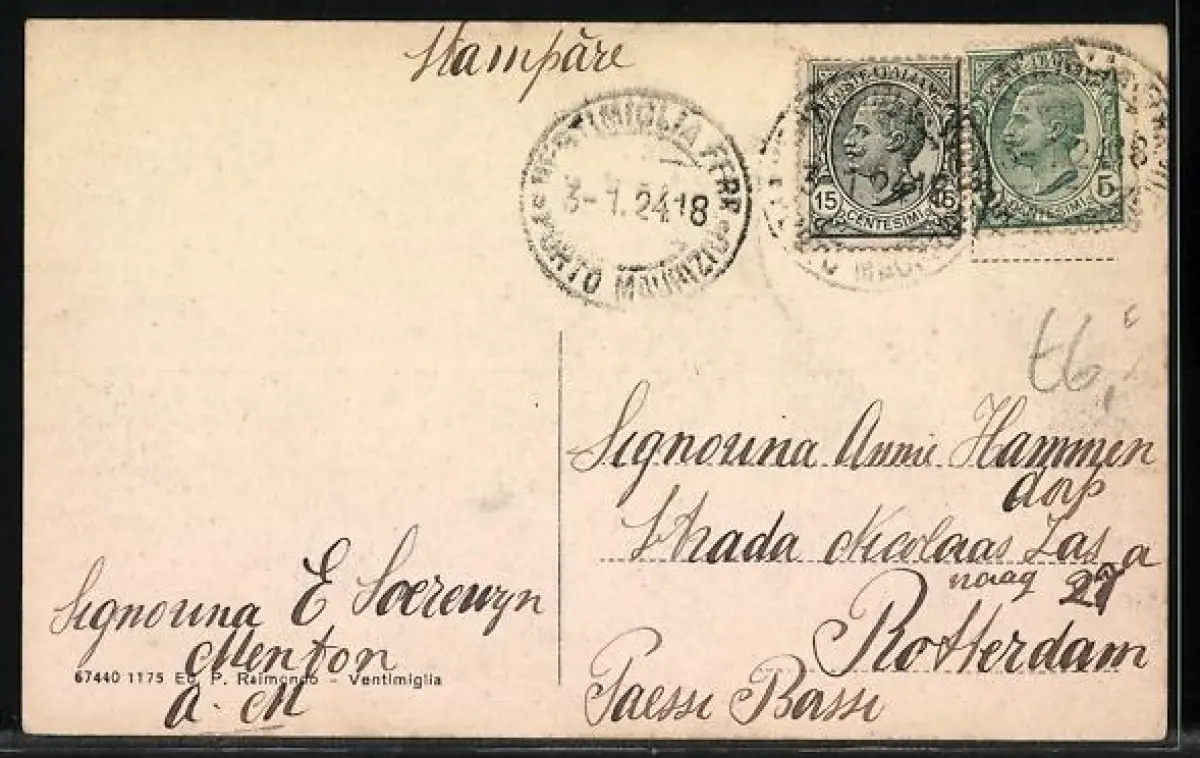 Stampāre
VENTIMIGLIA FERR.
3-1.24-18
PORTO MAURIZIO
POSTE ITALIANE
15 CENTESIMI 15
5
CENTESIMI
t6,-
Signorina Annie Hammen
dorp
Strada Nicolaas Zas
27
Rotterdam
Paessi Bassi
Signorina E Soerewyn
Menton
A. M
67440 1175 Ed. P. Raimondo - Ventimiglia